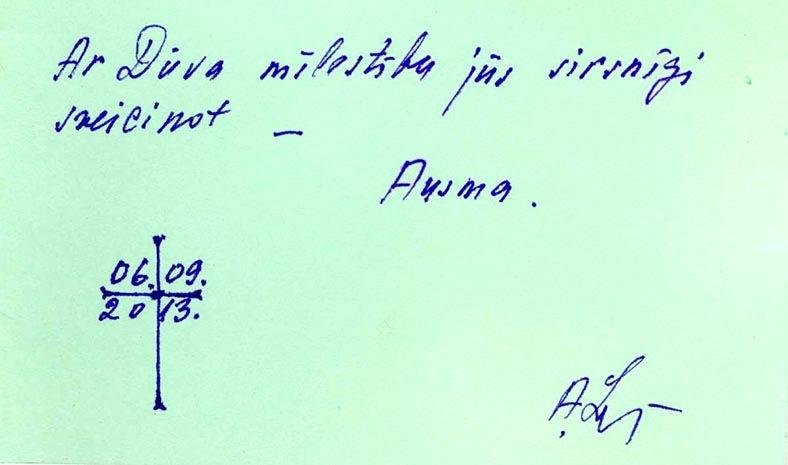 Ar Dieva mīlestību jūs sirsnīgi
sveicinot –
Ausma.
06. 09.
20 13.